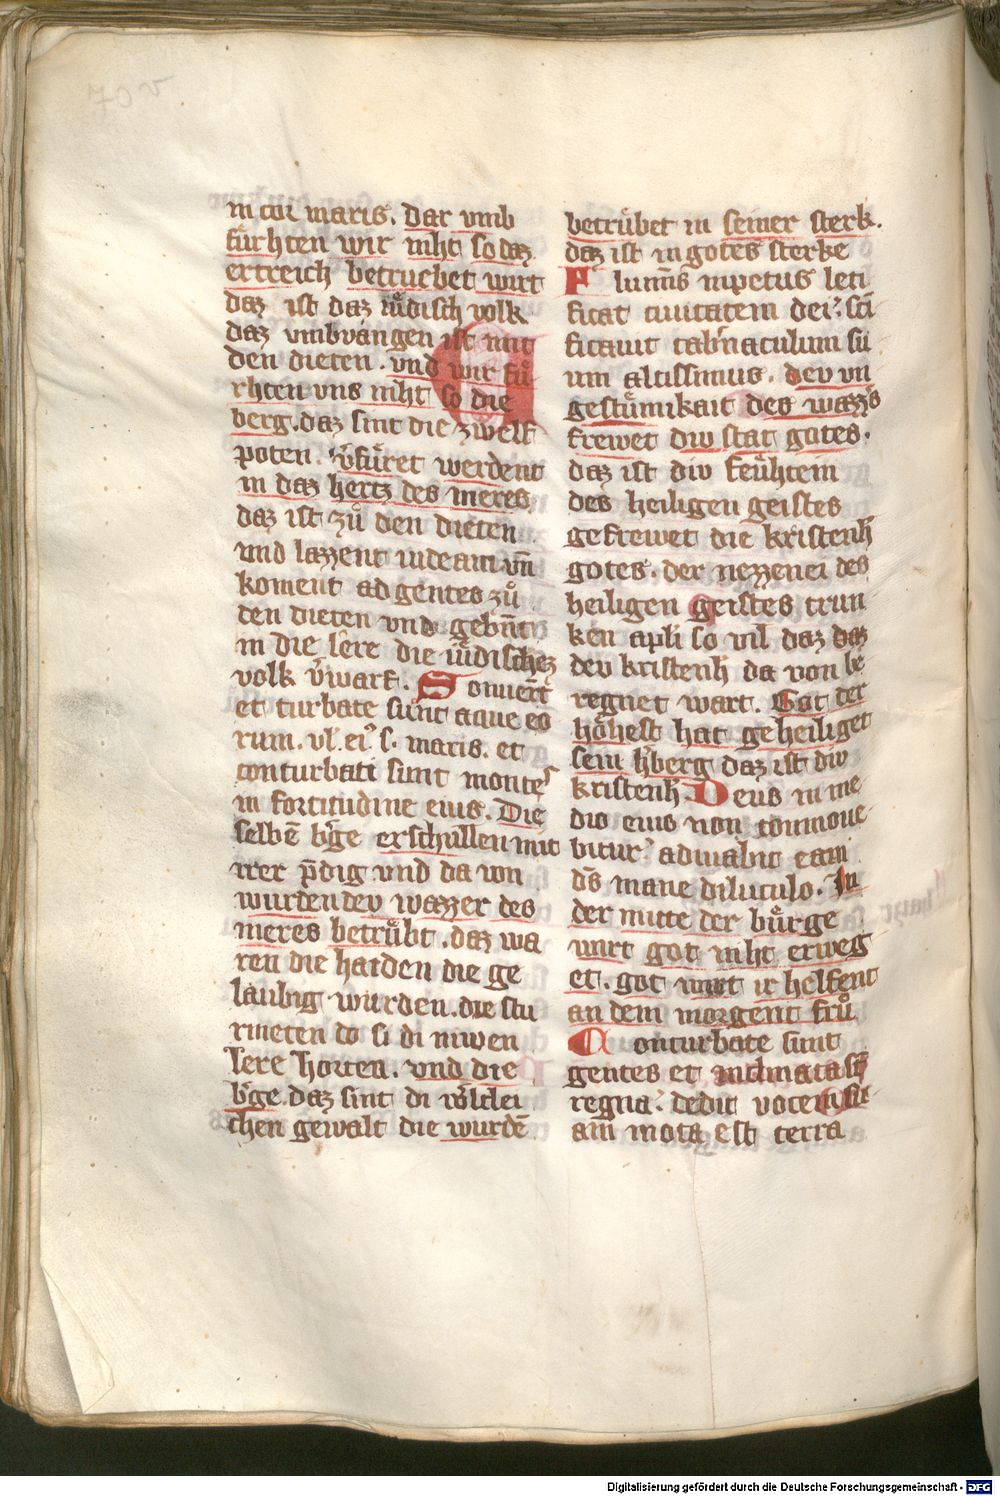 70v
in cor maris. Dar vmb
fürhten wir niht so daz
ertreich betruebet wirt
daz ist daz iüdisch volk
daz vmbvangen ist mit
den dieten. vnd wir fü
rhten vns niht so die
berg. daz sint die zwelf
poten. v̓füret werdent
in daz hertz des meres
daz ist zů den dieten
vnd lazzent iudeam vn̄
koment ad gentes zů
den dieten vnd
in die lere die iüdischez
volk v̓warf. Sonuer̄t
et turbate sunt aque eo
rum. vl̓ ei᷒ s. maris. et
conturbati sunt montes
in fortitudine eius. Die
selbē b̓ge erschullen mit
irer p̄dig vnd da von
wurden dev wazzer des
meres betrübt. daz wa
ren die haiden die ge
laubig wurden. die stu
rmeten do si di niwen
lere horten. vnd die
b̓ge. daz sint di
chen gewalt die wurdē
betrübet in seiner sterk.
daz ist in gotes sterke
Flumīs inpetus leti
ficat ciuitatem dei. sc̄i
ficauit tab̓naculum su
um altissimus. dev vn
gestümikait des wazz̓s
frewet div stat gotes.
daz ist div feühtein
des heiligen geistes
gefrewet die kristenh̄
gotes. der nezzenei des
heiligen geistes trun
ken apl̓i so vil daz daz
dev kristenh̄ da von be
regnet wart. Got der
höhest hat geheiliget
sein h̓berg daz ist div
kristenh̄ Deus in me
dio eius non commoue
bitur. adiuabit eam
d̄s mane diluculo. In
der mitte der bürge
wirt got niht erweg
et. got wirt ir helfent
an dem morgent frů
Conturbate sunt
gentes et inclinata sūt
regna. dedit vocem su
am mota est terra
Digitalisierung gefördert durch die Deutsche Forschungsgemeinschaft - DFG